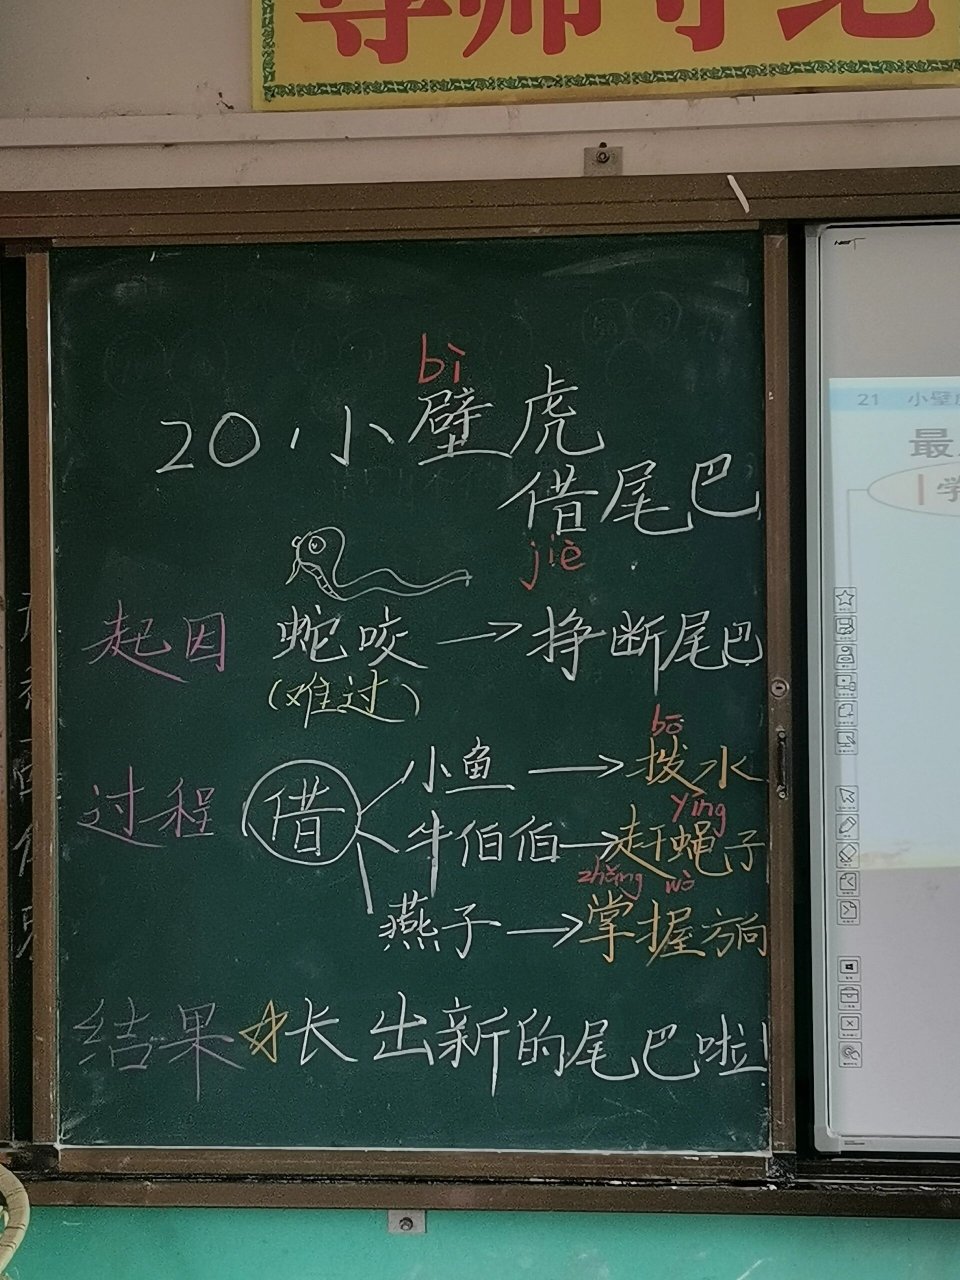 bì
20、小壁虎
借尾巴
jiè
起因 蛇咬→挣断尾巴
(难过)
bō
过程 借 小鱼→拨水
yíng
牛伯伯→赶蝇子
zhǎng wò
燕子→掌握方向
结果 ☆长出新的尾巴啦!
21 小壁虎
最
学